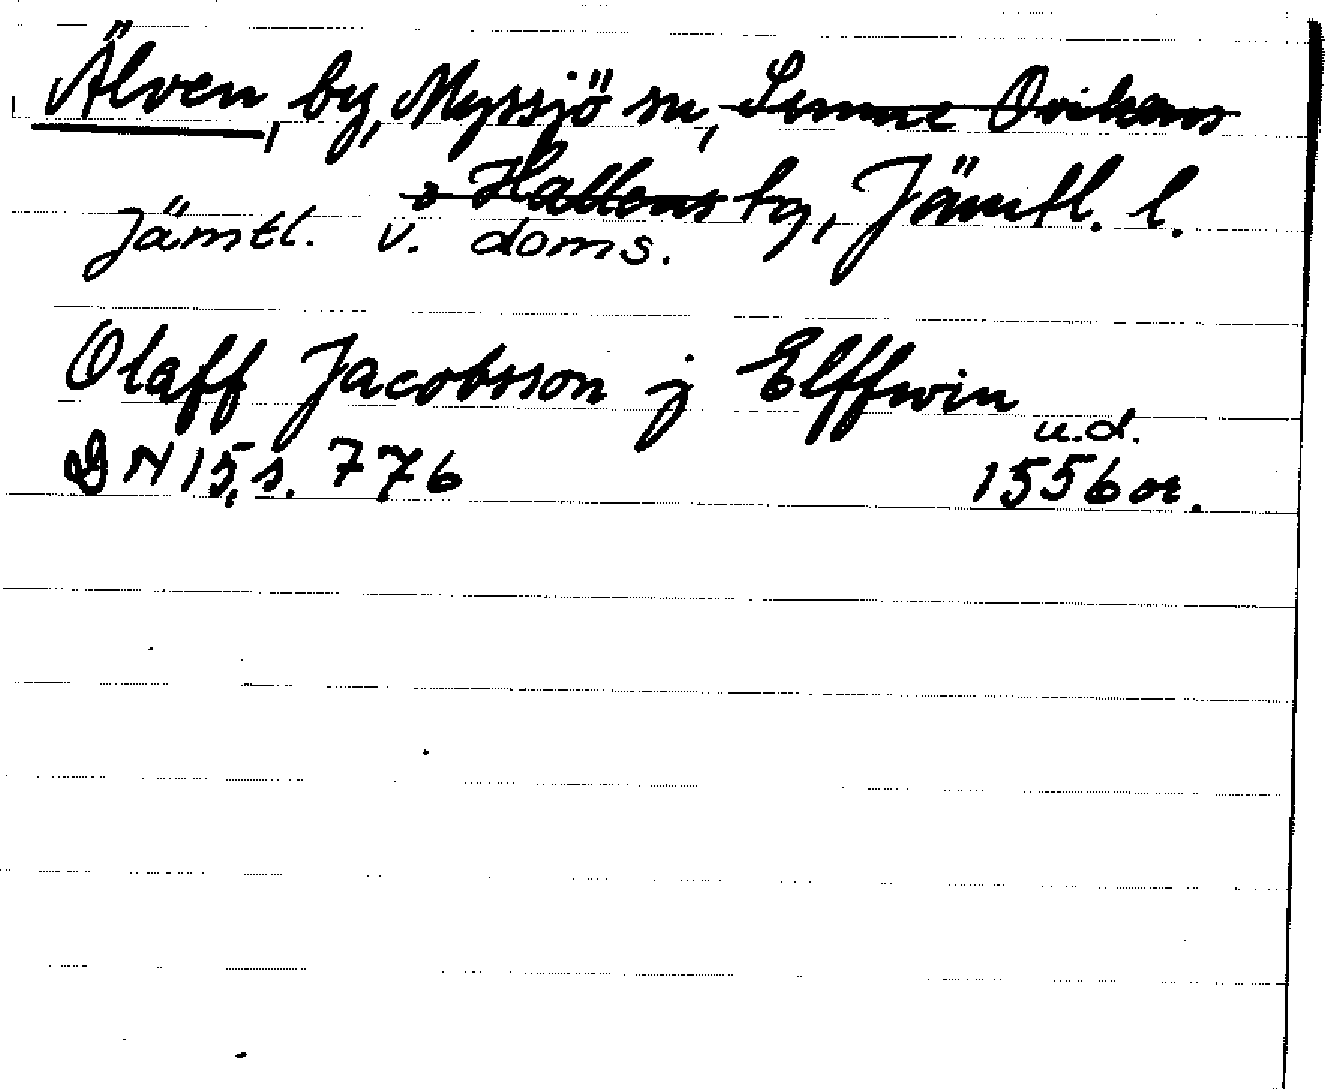 Älven, by, Myssjö sn, Sunne Ovikens
o Hallens tg, Jämtl. l.
Jämtl. v. doms.
Olaff Jacobsson j Elffwin
u.d.
DN 15, s. 776 1556 or.